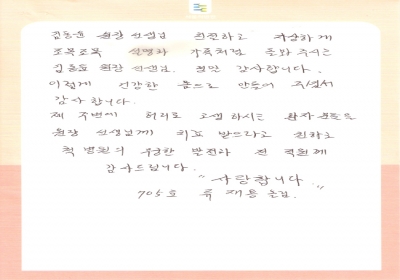 김동윤 원장 선생님 친절하고 자상하게
조목조목 설명과 가족처럼 돌봐 주시는
김동윤 원장 선생님. 정말 감사합니다.
이렇게 건강한 몸으로 만들어 주셔서
감사합니다.
제 주변에 허리로 고생 하시는 환자분들을
원장 선생님께 치료 받으라고 전하고
척 병원의 무궁한 발전과 전 직원께
감사드립니다.
"사랑합니다"
705호 류재용 올림.